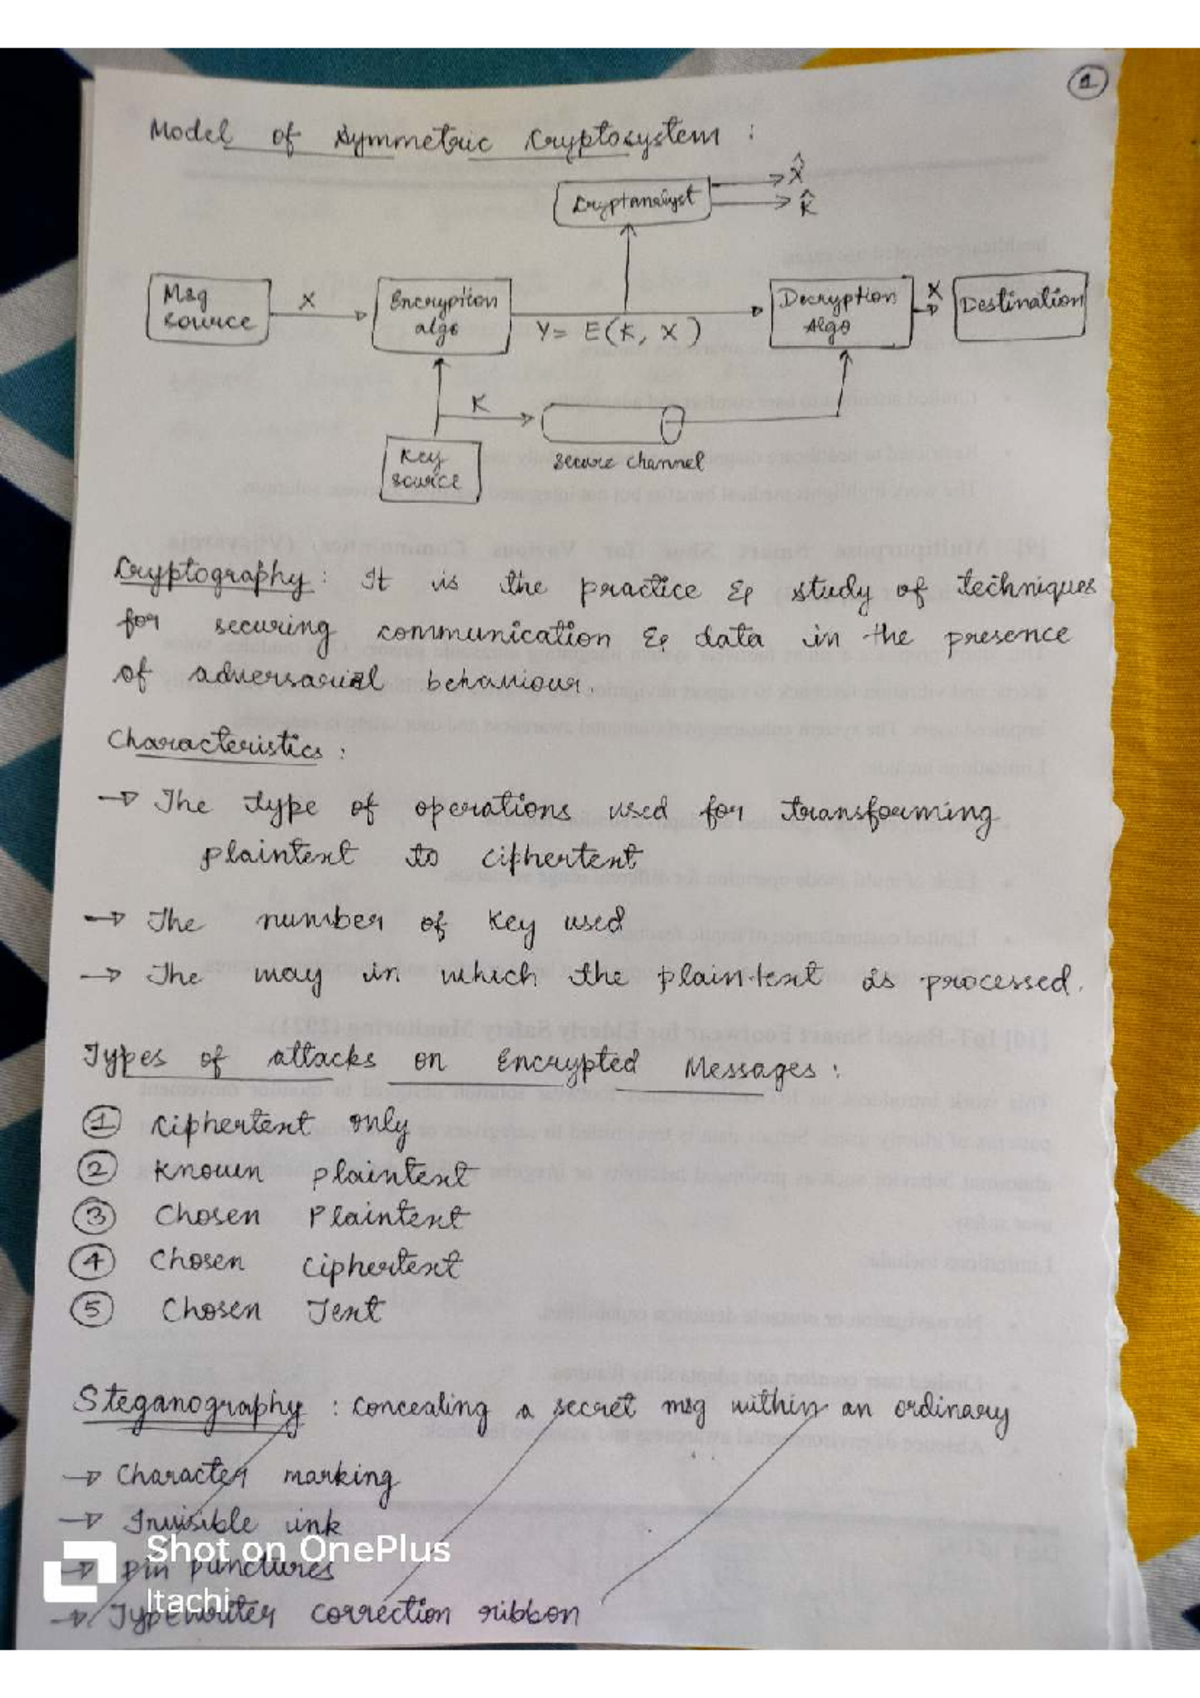 1
Model of Symmetric Cryptosystem :
Cryptanalyst
X̂
K̂
Msg source
X
Encryption algo
Y= E(K, X)
Decryption Algo
X
Destination
K
Key source
Secure channel
Cryptography : It is the practice & study of techniques
for securing communication & data in the presence
of adversarial behaviour.
Characteristics :
→ The type of operations used for transforming
plaintext to ciphertext
→ The number of key used
→ The way in which the plain-text is processed.
Types of attacks on Encrypted Messages :
① Ciphertext only
② Known plaintext
③ Chosen Plaintext
④ Chosen Ciphertext
⑤ Chosen Text
Steganography : concealing a secret msg within an ordinary
→ Character marking
→ Invisible ink
→ Pin punctures
→ Typewriter correction ribbon
Shot on OnePlus
Itachi